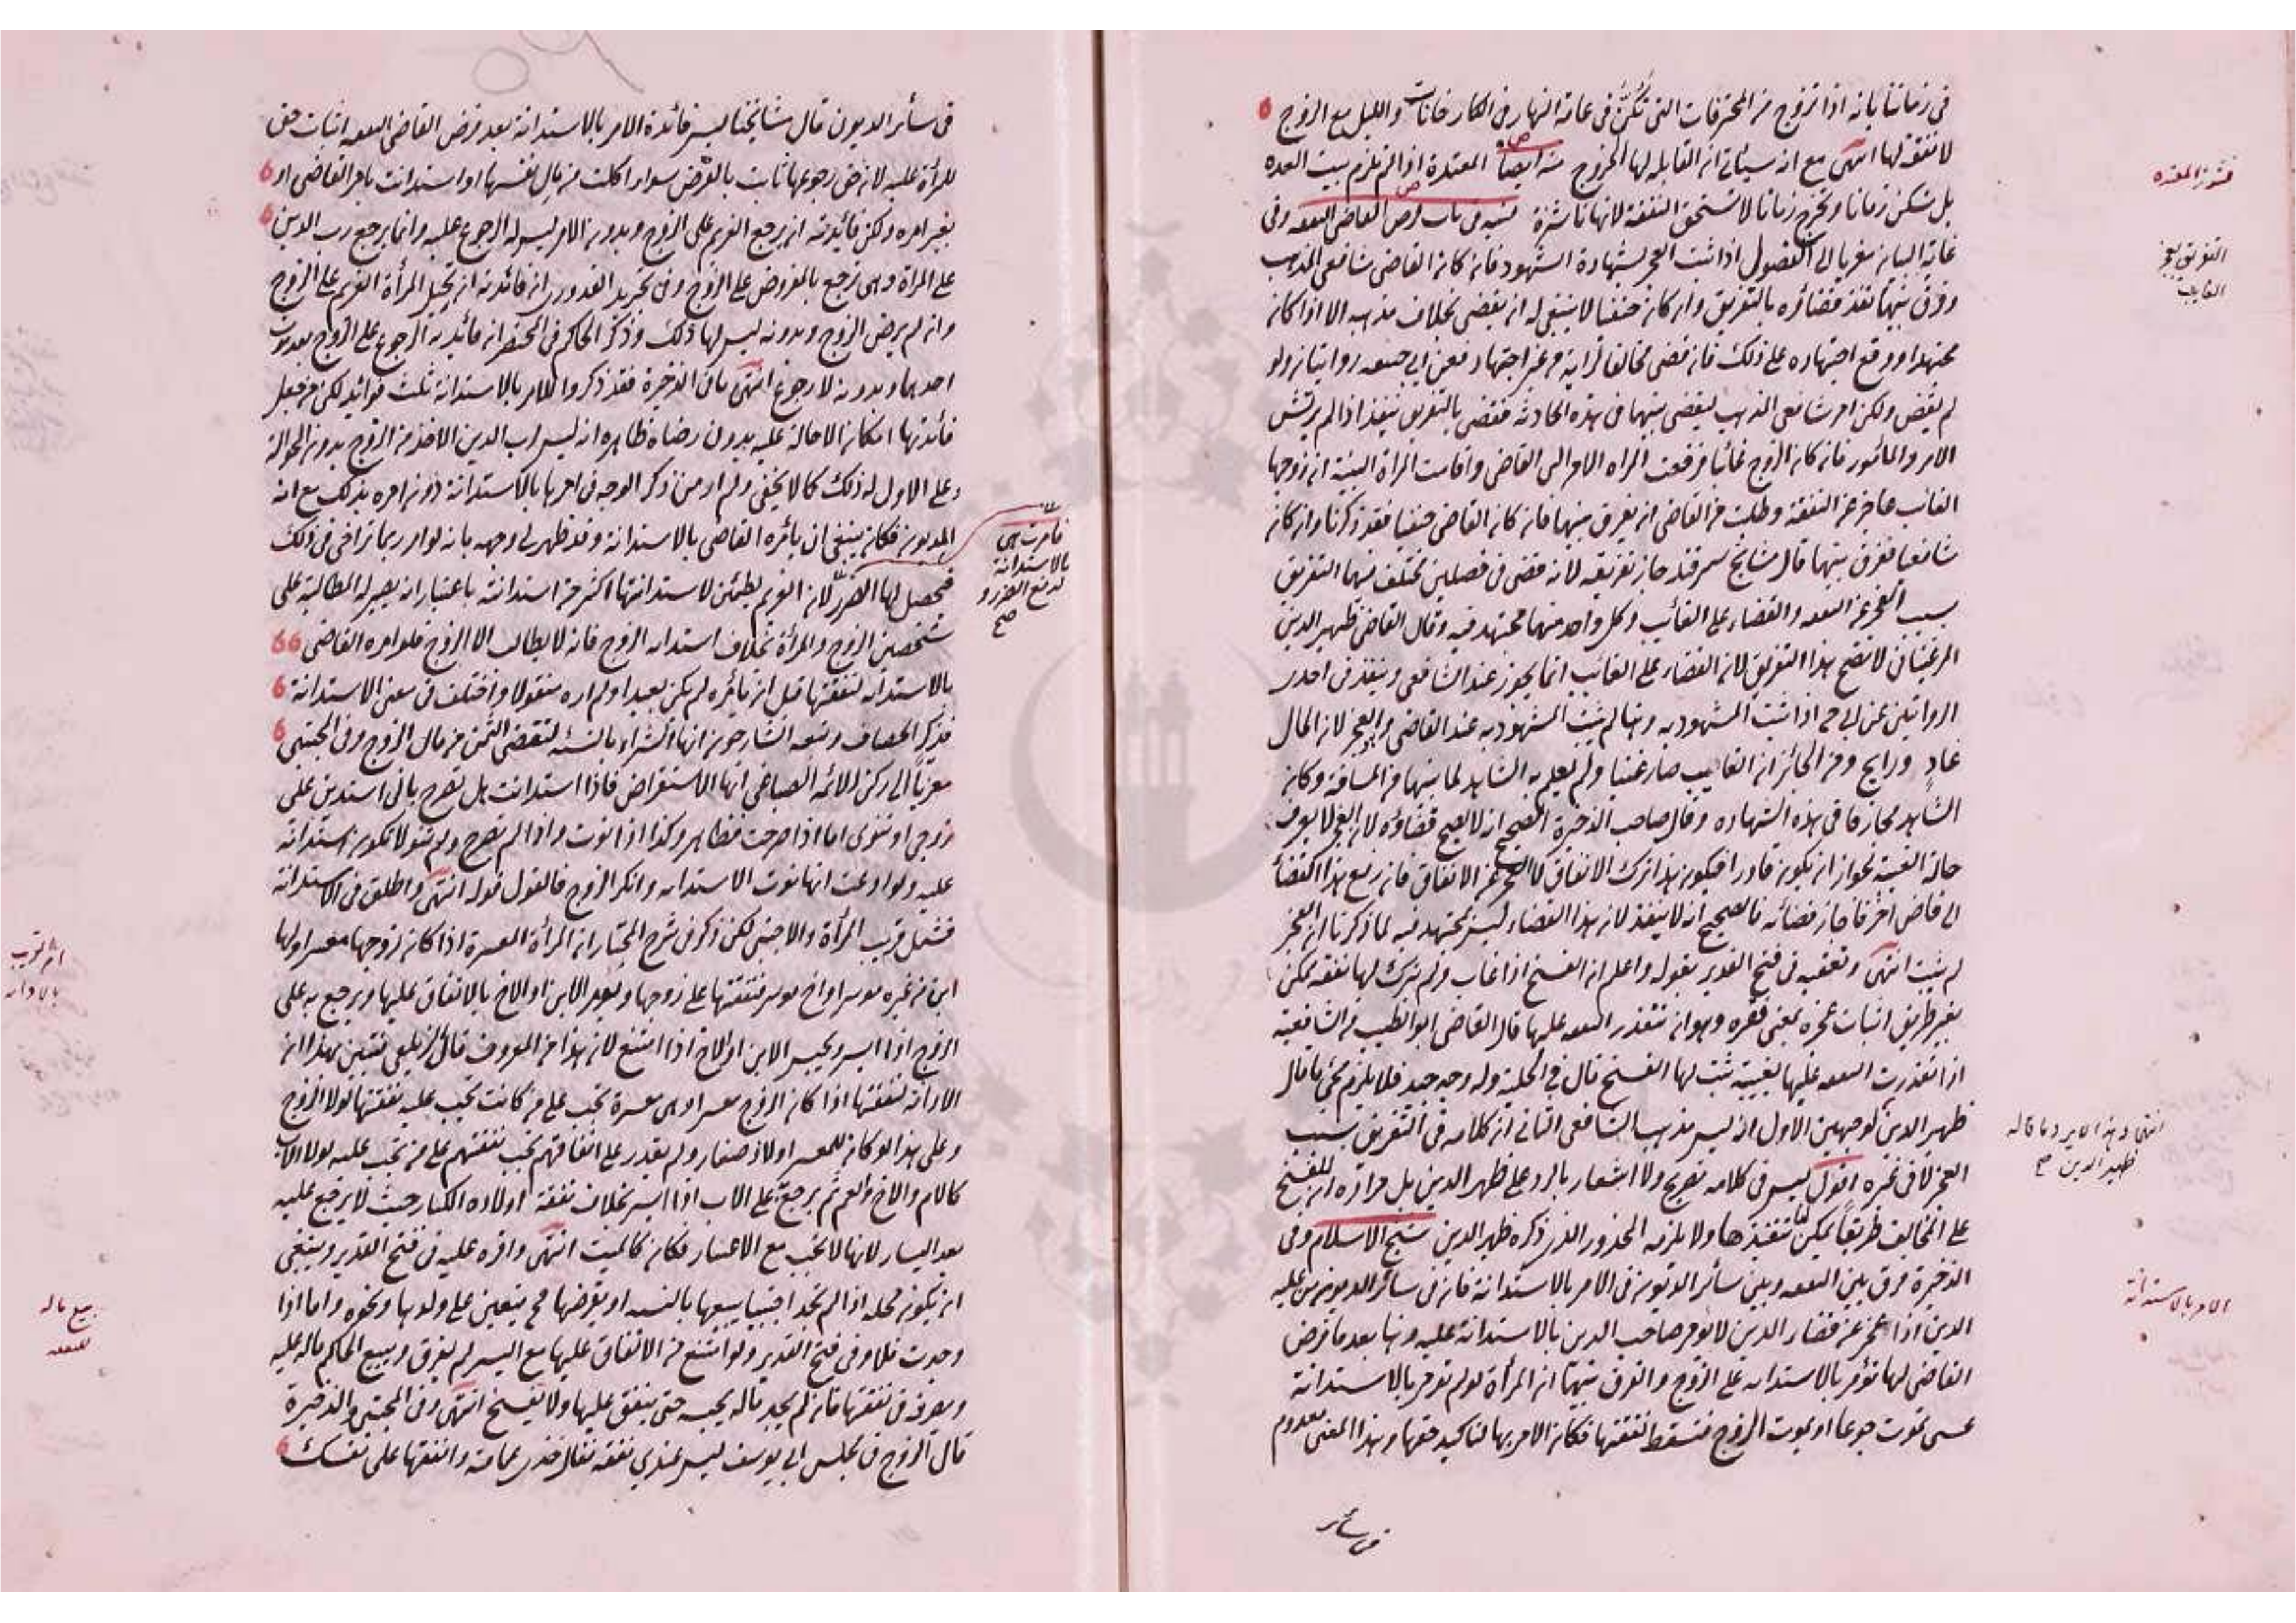 في زماننا بانه اذا تزوج من المحترفات التي تكن في عامة النهار في الكارخانات والليل مع الزوج
لا نفقة لها انتهى مع انه سياتي ان القابلة لها الخروج منه ايضا المعتدة اذا لم تلزم بيت العده
بل تسكن زمانا وتخرج زمانا لا تستحق النفقة لانها ناشزة في باب فرض القاضي النفقه وفي
غاية البيان معزيا الى الفصول اذا ثبت العجز بشهادة الشهود فان كان القاضي شافعي المذهب
وفرق بينهما نفذ قضاؤه بالتفريق وان كان حنفيا لا ينبغي له ان يقضي بخلاف مذهبه الا اذا كان
مجتهدا ووقع اجتهاده على ذلك فان قضى مخالفا لرايه من غير اجتهاد فعن ابي حنيفه روايتان ولو
لم يقض ولكن امر شافعي المذهب ليقضي بينهما في هذه الحادثة فقضى بالتفريق نفذ اذا لم يرتش
الامر والمأمور فان كان الزوج غائبا فرفعت المراه الامر الى القاضي واقامت المراة البينة ان زوجها
الغائب عاجز عن النفقة وطلبت من القاضي ان يفرق بينهما فان كان القاضي حنفيا فقد ذكرنا وان كان
شافعيا ففرق بينهما قال مشايخ سمرقند جاز تفريقه لانه قضى في فصلين مختلف فيهما التفريق
بسبب العجز عن النفقه والقضاء على الغائب وكل واحد منهما مجتهد فيه وقال القاضي ظهير الدين
المرغيناني لا يصح هذا التفريق لان القضاء على الغائب انما يجوز عند الشافعي وينفذ في احدى
الروايتين عن ابي ح اذا ثبت المشهود به وهنا لم يثبت المشهود به عند القاضي وهو العجز لان المال
غاد ورايح ومن الجائز ان الغايب صار غنيا ولم يعلم به الشاهد لما بينهما من المسافة وكان
الشاهد مجازفا في هذه الشهاده وقال صاحب الذخيرة الصحيح انه لا يصح قضاؤه لان العجز لا يعرف
حالة الغيبة لجواز ان يكون قادرا فيكون هذا ترك الانفاق لا العجز عن الانفاق فان رفع هذا القضأ
الى قاض اخر فاجاز قضائه فالصحيح انه لا ينفذ لان هذا القضاء ليس بمجتهد فيه لما ذكرنا ان العجز
لم يثبت انتهى وتعقبه في فتح القدير بقوله واعلم ان الفسخ اذا غاب ولم يترك لها نفقه يمكن
بغير طريق اثبات عجزه بمعنى فقره وهو ان تتعذر النفقه عليها قال القاضي ابو الطيب من الشافعية
اذا تعذرت النفقه عليها بغيبته ثبت لها الفسخ قال في الحلية وله وجه جيد فلا يلزم مجئ ما قال
ظهير الدين لوجهين الاول انه ليس مذهب الشافعي الثاني ان كلامه في التفريق بسبب
العجز لا في غيره اقول ليس في كلامه تصريح ولا اشعار بالرد على ظهير الدين بل مراده ان للفسخ
على الغائب طريقا يمكن تنفيذها ولا يلزمه المحذور الذي ذكره ظهير الدين شيخ الاسلام وفي
الذخيرة فرق بين النفقه وبين سائر الديون في الامر بالاستدانة فان في سائر الديون من عليه
الدين اذا عجز عن قضاء الدين لا يؤمر صاحب الدين بالاستدانة عليه وهنا بعد ما فرض
القاضي لها تؤمر بالاستدانه على الزوج والفرق بينهما ان المرأة لو لم تؤمر بالاستدانة
عسى تموت جوعا او يموت الزوج فتسقط نفقتها فكان الامر بها لتاكيد حقها وهذا المعنى معدوم
في سائر
نشوز المعتده
التفريق بعجز
الغايب
انتهى وهذا لا يرد ما قاله
ظهير الدين صح
الامر بالاستدانة
في سأئر الديون قال مشايخنا ليس فائدة الامر بالاستدانة بعد فرض القاضي النفقه اثبات حق
للمرأة عليه لان حق رجوعها ثابت بالفرض سواء اكلت من مال نفسها او استدانت بامر القاضي او
بغير امره ولكن فائدته ان يرجع الغريم على الزوج وبدون الامر ليس له الرجوع عليه وانما يرجع رب الدين
على المراة وهي ترجع بالمفروض على الزوج وفي تجريد القدوري ان فائدته ان تحيل المرأة الغريم على الزوج
وان لم يرض الزوج وبدونه ليس لها ذلك وذكر الحاكم في المختصر ان فائدته الرجوع على الزوج بعد موت
احدهما وبدونه لا رجوع انتهى ما في الذخيرة فقد ذكروا للامر بالاستدانة ثلث فوائد لكن من جعل
فائدتها امكان الاحالة عليه بدون رضاه ظاهره انه ليس لرب الدين الاخذ من الزوج بدون الحوالة
وعلى الاول له ذلك كما لا يخفى ولم ار من ذكر الوجه في امرها بالاستدانة دون امره بذلك مع انه
المديون فكان ينبغي ان يأمره القاضي بالاستدانة وقد ظهر لي وجهه بانه لو امر ربما تراخى في ذلك
فيحصل لها الضرر لان الغريم يطمئن لاستدانتها اكثر من استدانته باعتبار انه يصير له المطالبة على
شخصين الزوج والمرأة بخلاف استدانه الزوج فانه لا يطالب الا الزوج فلو امره القاضي
بالاستدانه لنفقتها قبل ان يأمره لم يكن بعيدا ولم اره منقولا واختلف في معنى الاستدانة
فذكر الخصاف وتبعه الشارحون انها الشراء بالنسئه لتقضي الثمن من مال الزوج وفي المجتبى
معزيا الى ركن الائمه الصباغي انها الاستقراض فاذا استدانت هل تصرح باني استدين على
زوجي او تنوى اما اذا صرحت فظاهر وكذا اذا نوت واذا لم تصرح ولم تنو لا تكون استدانه
عليه ولو ادعت انها نوت الاستدانه وانكر الزوج فالقول قوله انتهى واطلق في الاستدانه
فشمل قريب المرأة والاجنبي لكن ذكر في شرح المختار ان المرأة المعسرة اذا كان زوجها معسرا ولها
ابن من غيره موسر او اخ موسر فنفقتها على زوجها ويؤمر الابن او الاخ بالانفاق عليها ويرجع به على
الزوج اذا ايسر ويحبس الابن او الاخ اذا امتنع لان هذا من المعروف قال الزيلعي فتبين بهذا ان
الادانه لنفقتها اذا كان الزوج معسرا وهي معسرة تجب على من كانت تجب عليه نفقتها لولا الزوج
وعلى هذا لو كان للمعسر اولاد صغار ولم يقدر على انفاقهم تجب نفقتهم على من تجب عليه لولا الاب
كالام والاخ والعم ثم يرجع على الاب اذا ايسر بخلاف نفقة اولاده الكبار حيث لا يرجع عليه
بعد اليسار لانها لا تجب مع الاعسار فكان كالميت انتهى واقره عليه في فتح القدير وينبغي
ان يكون محله اذا لم تجد اجنبيا يبيعها بالنسيه او يقرضها فح يتعين على ولدها ونحوه واما اذا
وجدت فلا وفي فتح القدير ولو امتنع من الانفاق عليها مع اليسر لم يفرق ويبيع الحاكم ماله عليه
ويصرفه في نفقتها فان لم يجد ماله يحبسه حتى ينفق عليها ولا يفسخ انتهى وفي المجتبى والذخيرة
قال الزوج في مجلس ابي يوسف ليس عندي نفقه فقال خذي عمامته وانفقها على نفسك
فامرت هي
بالاستدانة
لدفع الضرر
صح
بالادانه
بيع ماله
للنفقه